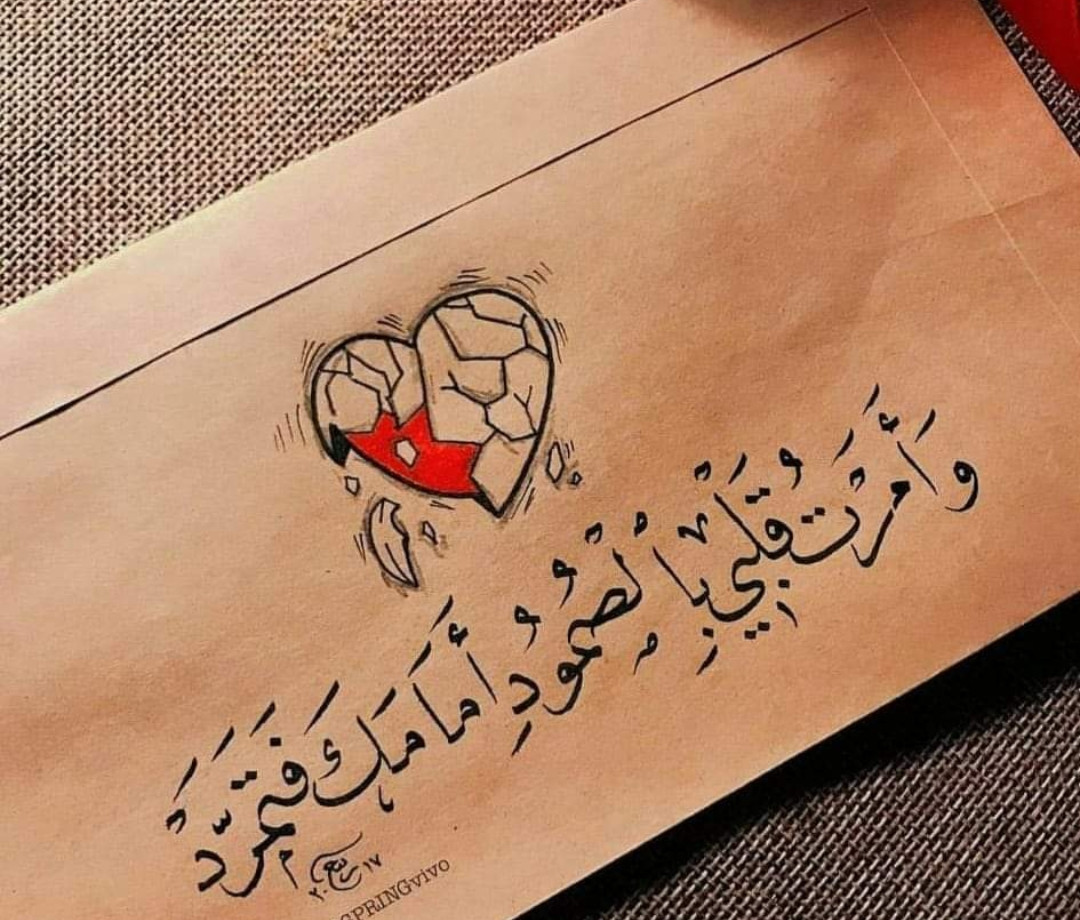 وَأَمَرْتُ قَلْبِيْ بِالْصُّمُودِ أَمَامَكَ فَتَمَرَّدَ
ربيع
٢٠١٧
SPRINGvivo